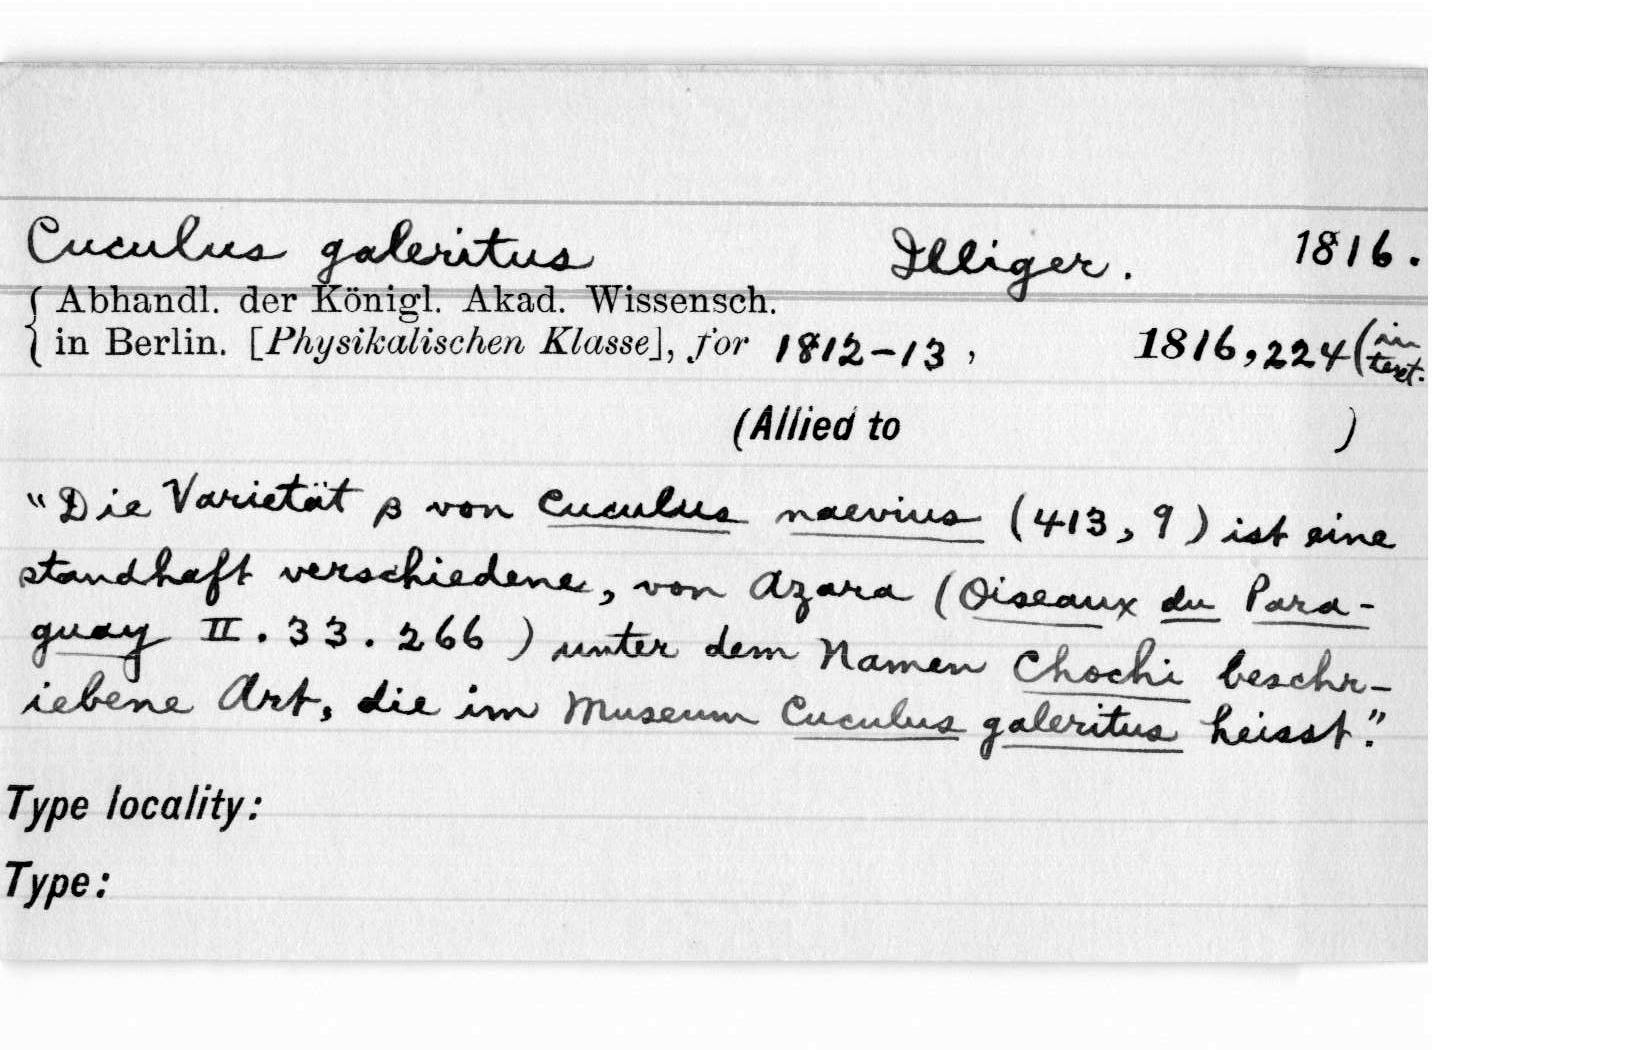 Cuculus galeritus Illiger. 1816.
{ Abhandl. der Königl. Akad. Wissensch.
in Berlin. [Physikalischen Klasse], for 1812-13, 1816, 224 (in text.
(Allied to )
"Die Varietät β von Cuculus naevius (413, 9) ist eine
standhaft verschiedene, von Azara (Oiseaux du Para-
guay II. 33. 266) unter dem Namen Chochi beschr-
iebene Art, die im Museum Cuculus galeritus heisst."
Type locality:
Type: